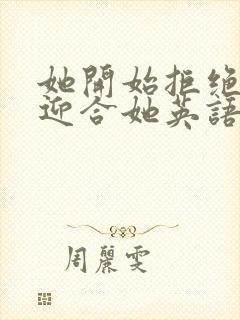 她開始拒絕
迎合她英語
周麗雯